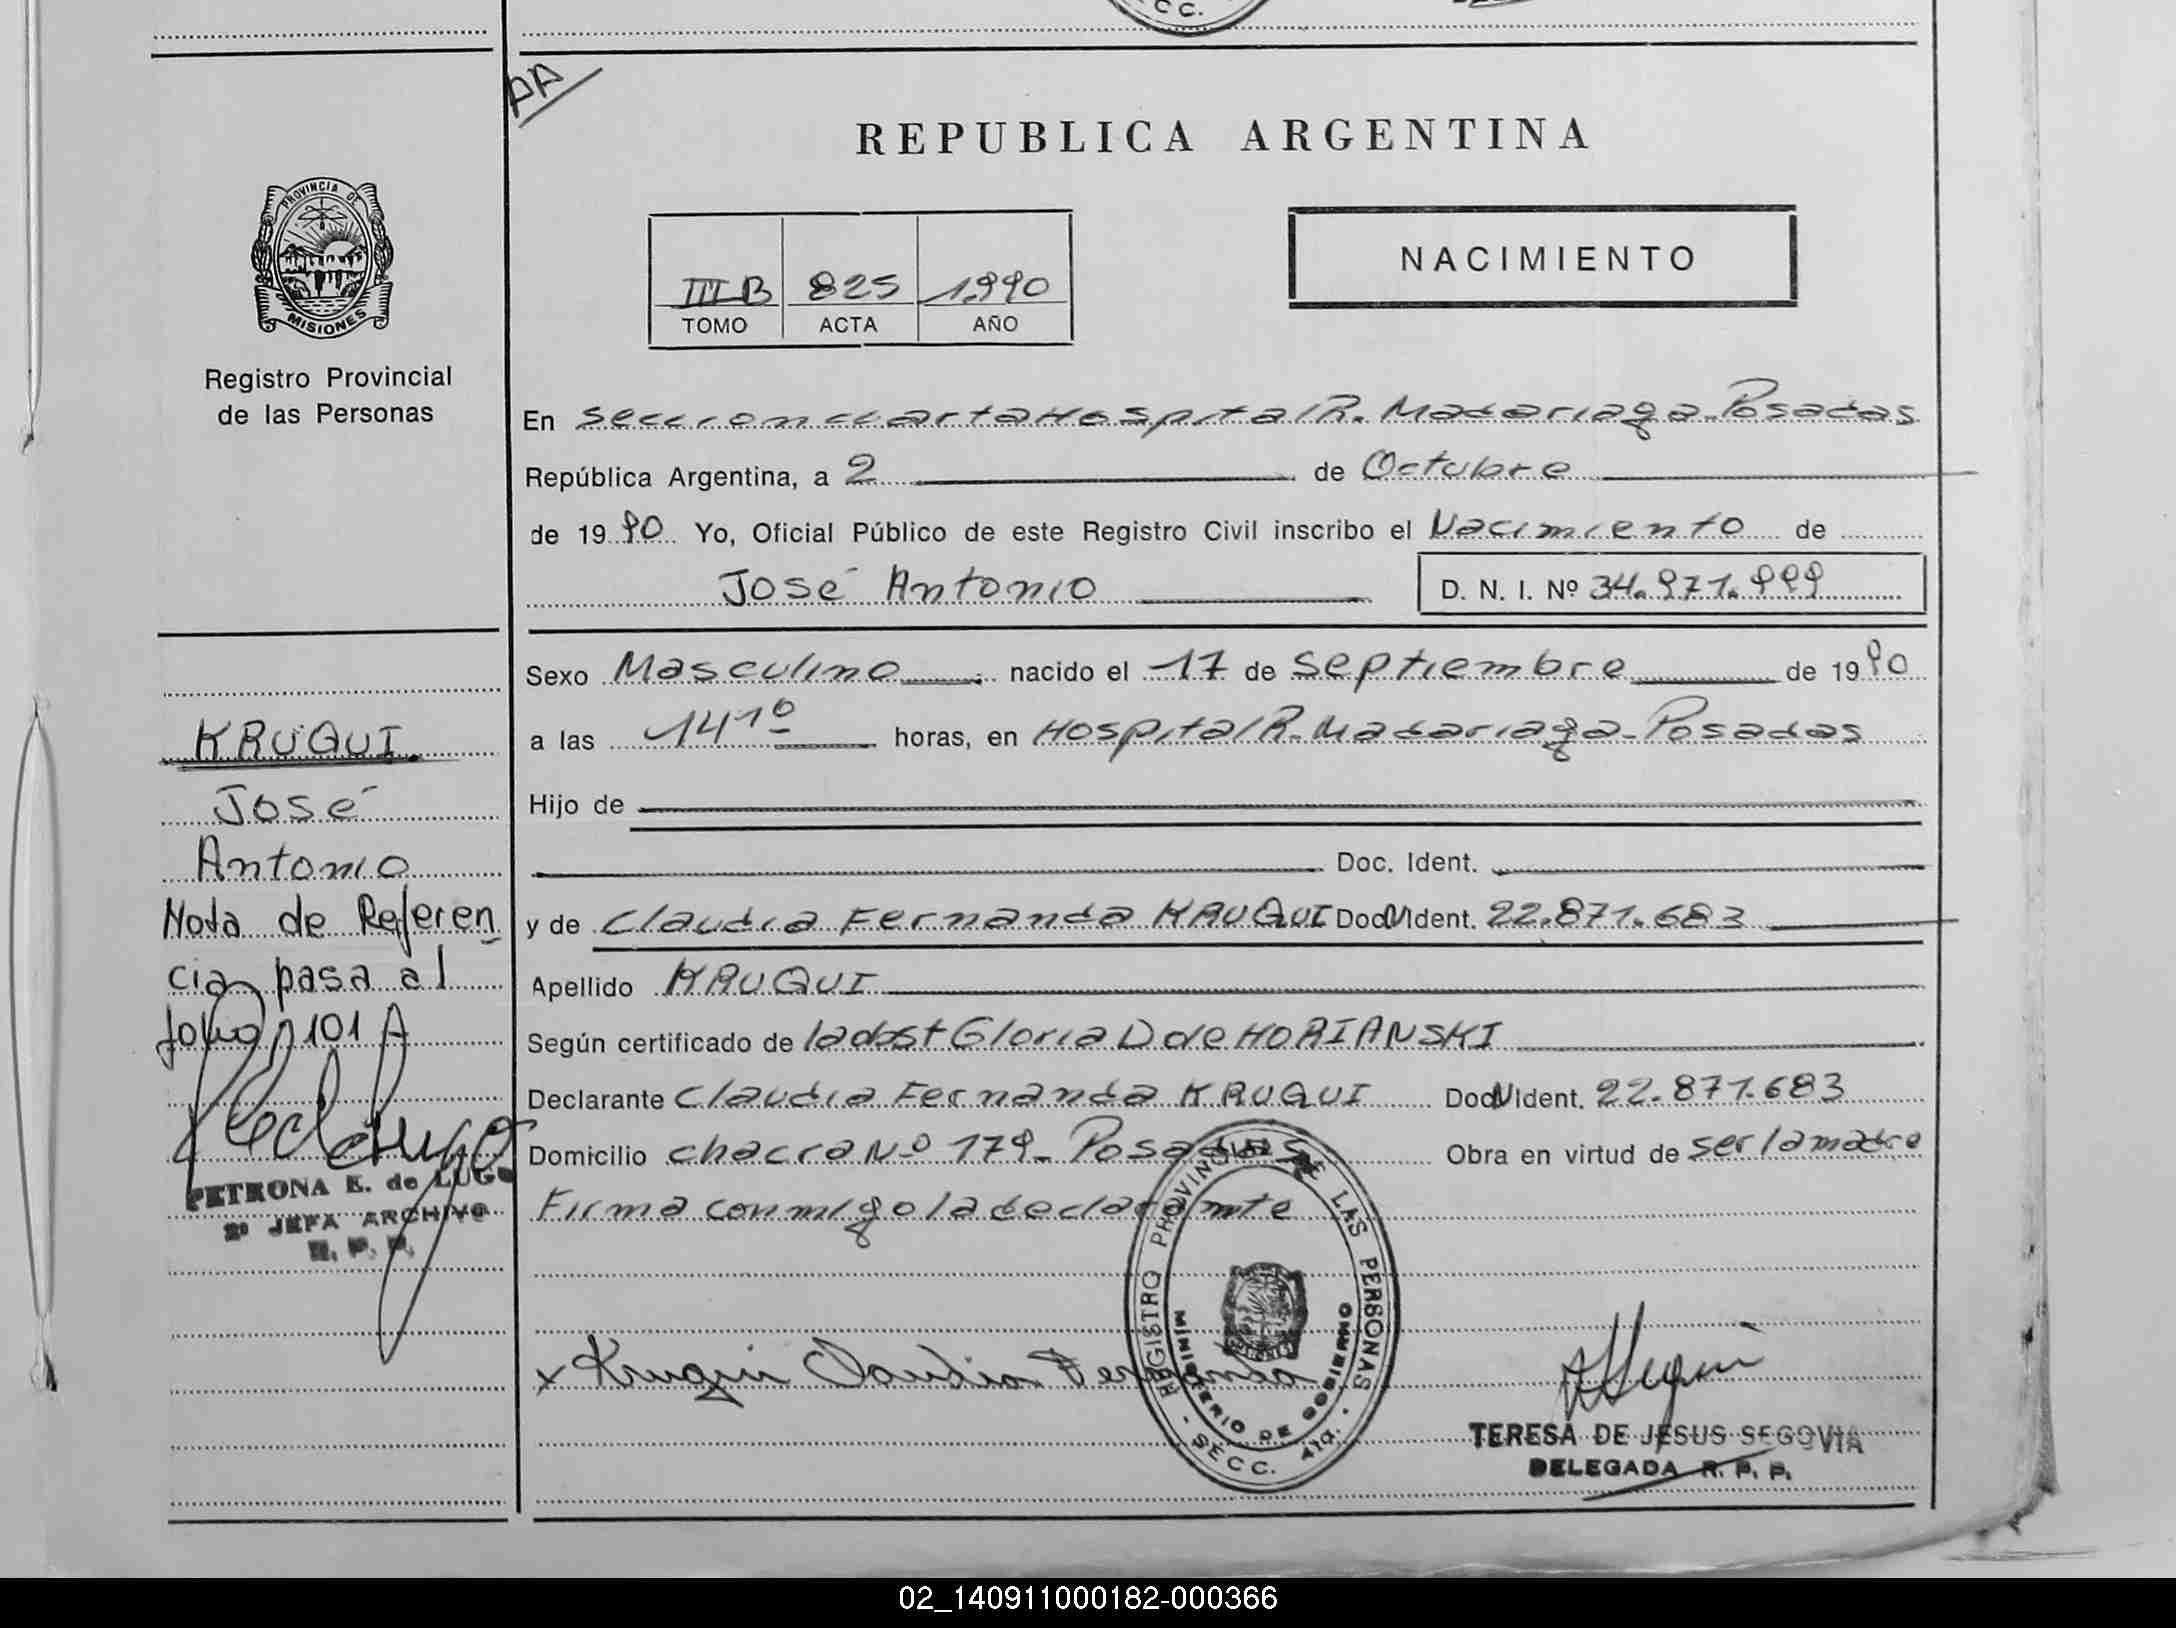 CC.
AA
REPUBLICA ARGENTINA
PROVINCIA DE
MISIONES
Registro Provincial
de las Personas
III B 825 1990
TOMO ACTA AÑO
NACIMIENTO
En seccion cuarta Hospital R. Madariaga - Posadas
República Argentina, a 2 de Octubre
de 1990 Yo, Oficial Público de este Registro Civil inscribo el Nacimiento de
José Antonio
D. N. I. Nº 34.971.999
Sexo Masculino nacido el 17 de septiembre de 1990
a las 14 10 horas, en Hospital R. Madariaga - Posadas
Hijo de
Doc. Ident.
y de Claudia Fernanda KRUQUI Doc N Ident. 22.871.683
Apellido KRUQUI
Según certificado de la obst Gloria D de HORIANSKI
Declarante Claudia Fernanda KRUQUI Doc N Ident. 22.871.683
Domicilio chacra Nº 179 - Posadas Obra en virtud de ser la madre
Firma conmigo la declarante
KRUQUI
José
Antonio
Nota de Referen
cia pasa al
folio 101 A
PETRONA E. de LUGO
2º JEFA ARCHIVO
R. P. P.
x Kruqui Claudia Fernanda
REGISTRO PROVINCIAL DE LAS PERSONAS
MINISTERIO DE GOBIERNO
- SECC. 4ta. -
TERESA DE JESUS SEGOVIA
DELEGADA R. P. P.
02_140911000182-000366